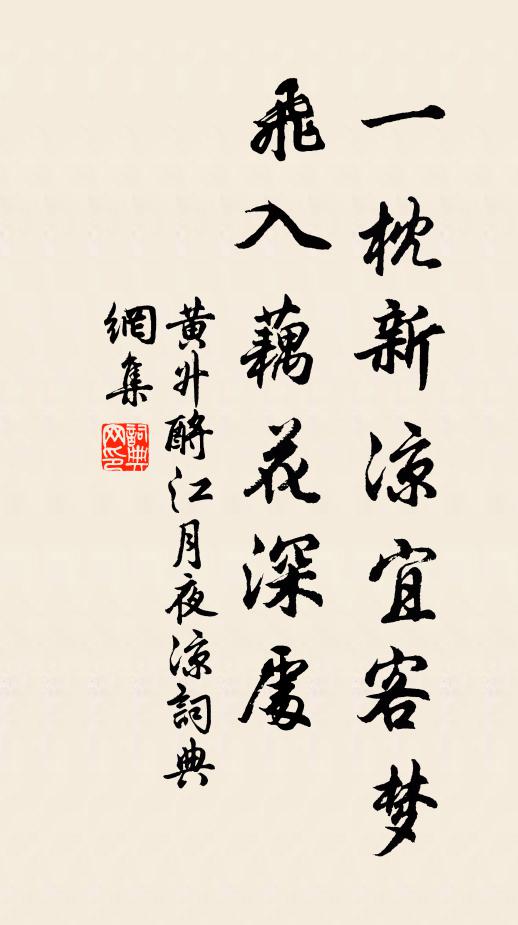 一枕新涼宜客梦
飛入藕花深處
黄升酹江月夜涼詞典
網集
詞典
网印